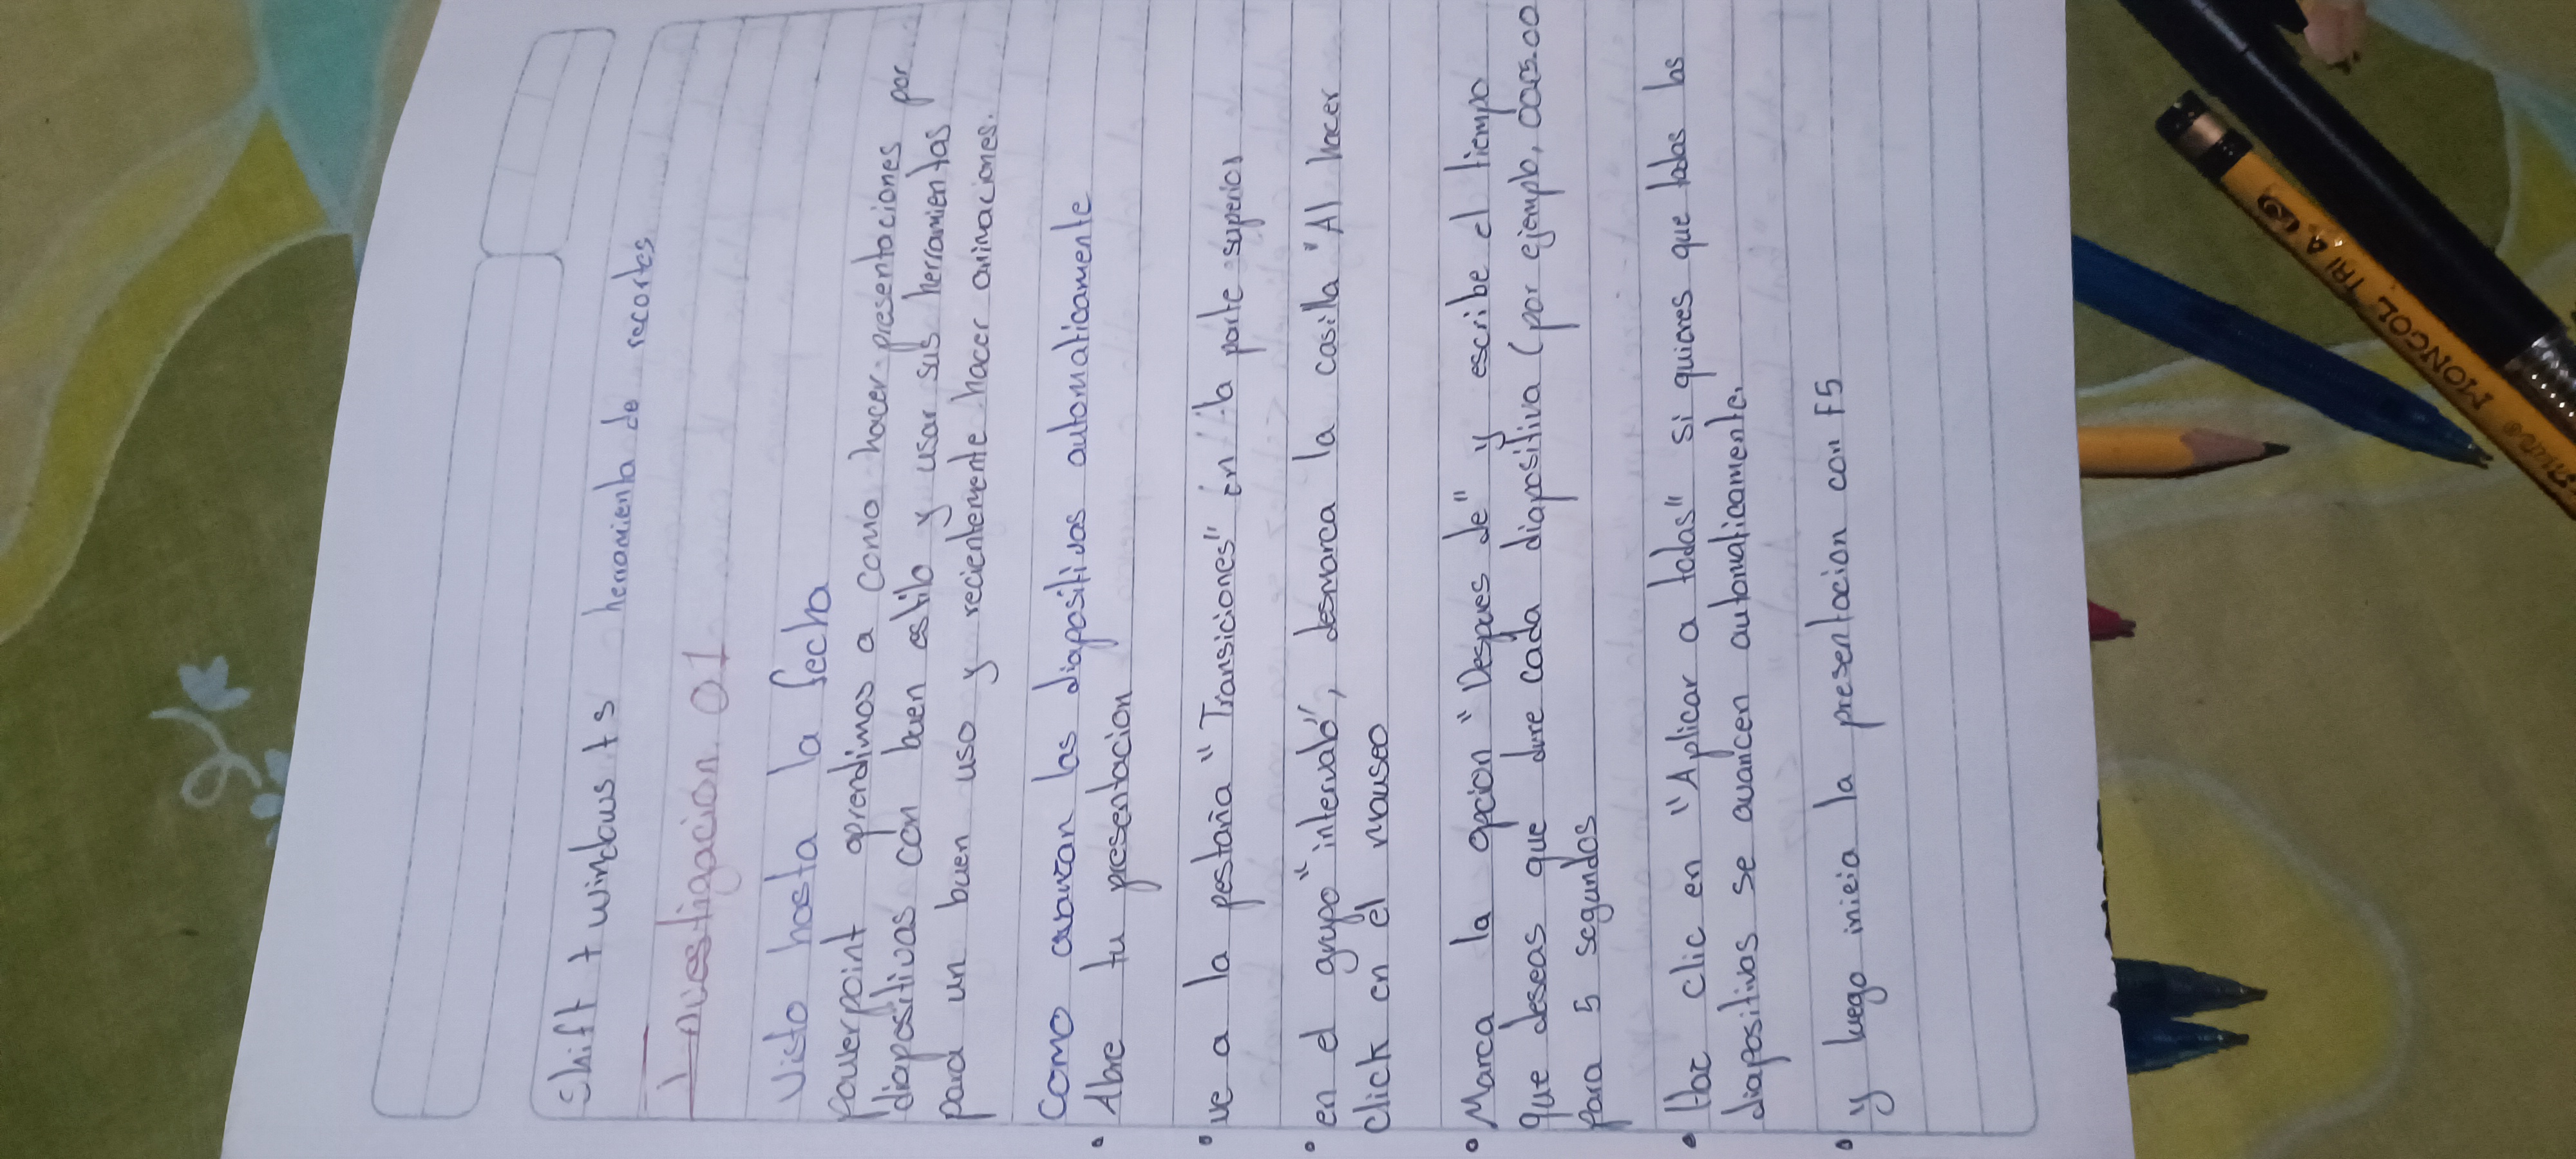 Shift + windows + s herramienta de recortes
Investigacion 01
Visto hasta la fecha
pouverpoint aprendimos a como hacer presentaciones por
diapositivas con buen estilo y usar sus herramientas por
para un buen uso y recientemente hacer animaciones.
Como avanzan las diapositivas automaticamente
• Abre tu presentacion
• ve a la pestaña "Transiciones" en la parte superior
• en el grupo "intervalo", desmarca la casilla "Al hacer
click en el mouseo
• Marca la opcion "Despues de" y escribe el tiempo
que deseas que dure cada diapositiva (por ejemplo,
para 5 segundos
• Haz clic en "Aplicar a todas" si quieres que todas las
diapositivas se avancen automaticamente.
• y luego inicia la presentacion con F5
MONGOL TRI A